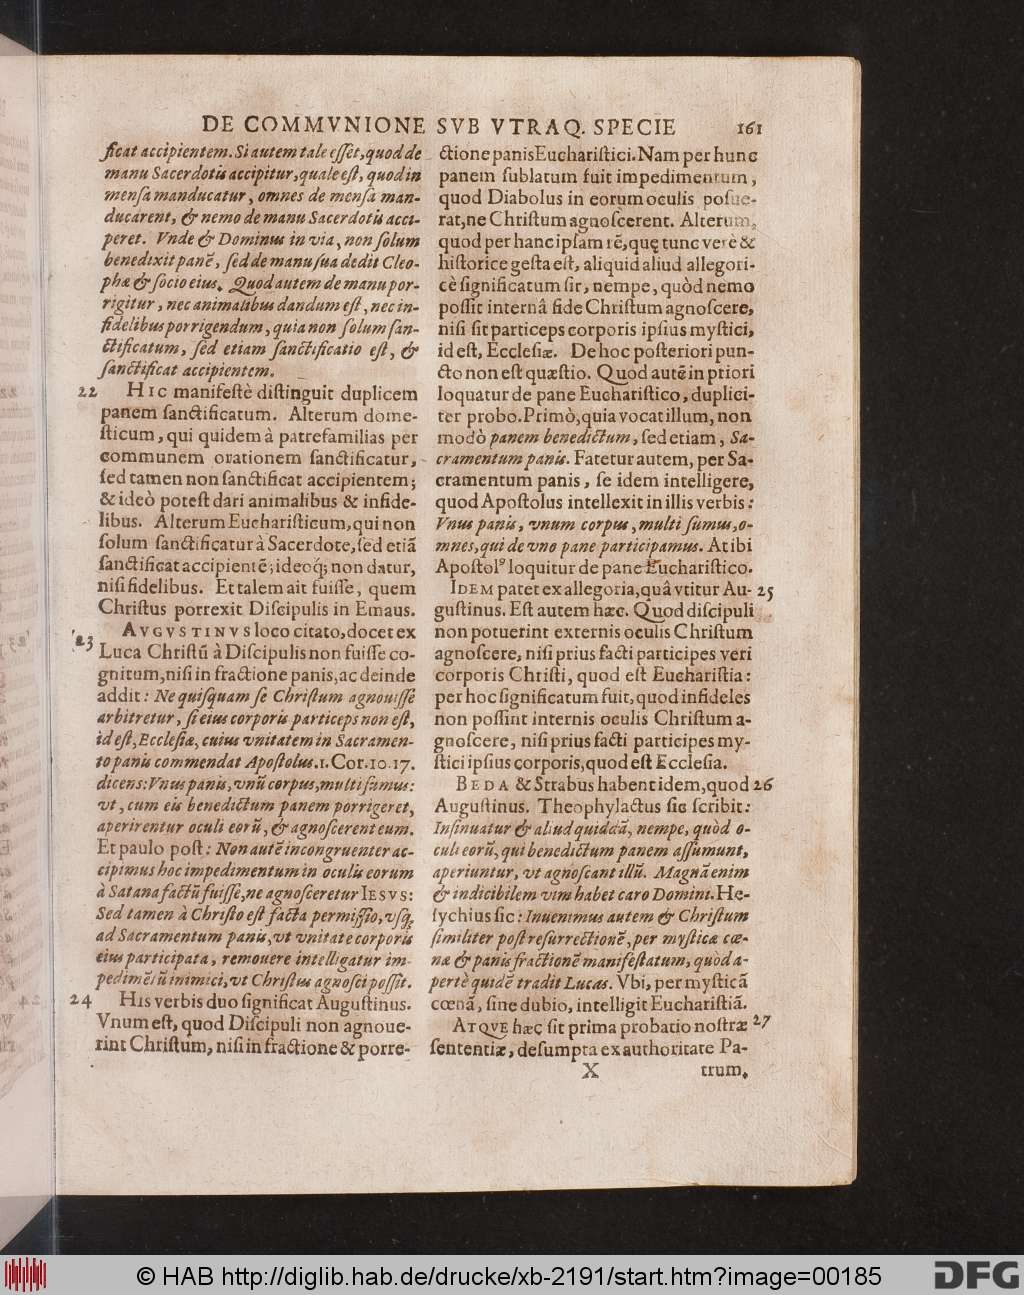 DE COMMVNIONE SVB VTRAQ. SPECIE 161
ficat accipientem. Si autem tale esset, quod de
manu Sacerdotis accipitur, quale est, quod in
mensa manducatur, omnes de mensa man-
ducarent, & nemo de manu Sacerdotis acci-
peret. Vnde & Dominus in via, non solum
benedixit panē, sed de manu sua dedit Cleo-
phæ & socio eius. Quod autem de manu por-
rigitur, nec animalibus dandum est, nec in-
fidelibus porrigendum, quia non solum san-
ctificatum, sed etiam sanctificatio est, &
sanctificat accipientem.
22 HIC manifestè distinguit duplicem
panem sanctificatum. Alterum dome-
sticum, qui quidem à patrefamilias per
communem orationem sanctificatur,
sed tamen non sanctificat accipientem;
& ideò potest dari animalibus & infide-
libus. Alterum Eucharisticum, qui non
solum sanctificatur à Sacerdote, sed etiā
sanctificat accipientē; ideoq́; non datur,
nisi fidelibus. Et talem ait fuisse, quem
Christus porrexit Discipulis in Emaus.
23 AVGVSTINVS loco citato, docet ex
Luca Christū à Discipulis non fuisse co-
gnitum, nisi in fractione panis, ac deinde
addit: Ne quisquam se Christum agnouisse
arbitretur, si eius corporis particeps non est,
id est, Ecclesiæ, cuius vnitatem in Sacramen-
to panis commendat Apostolus. 1. Cor. 10. 17.
dicens: Vnus panis, vnū corpus, multi sumus:
vt, cum eis benedictum panem porrigeret,
aperirentur oculi eorū, & agnoscerent eum.
Et paulo post: Non autē incongruenter ac-
cipimus hoc impedimentum in oculis eorum
à Satana factū fuisse, ne agnosceretur IESVS:
Sed tamen à Christo est facta permissio, vsq́;
ad Sacramentum panis, vt vnitate corporis
eius participata, remouere intelligatur im-
pedimētū inimici, vt Christus agnosci possit.
24 HIS verbis duo significat Augustinus.
Vnum est, quod Discipuli non agnoue-
rint Christum, nisi in fractione & porre-
ctione panis Eucharistici. Nam per hunc
panem sublatum fuit impedimentum,
quod Diabolus in eorum oculis posue-
rat, ne Christum agnoscerent. Alterum,
quod per hanc ipsam rē, quę tunc verè &
historice gesta est, aliquid aliud allegori-
cè significatum sit, nempe, quòd nemo
possit internâ fide Christum agnoscere,
nisi sit particeps corporis ipsius mystici,
id est, Ecclesiæ. De hoc posteriori pun-
cto non est quæstio. Quod autē in priori
loquatur de pane Eucharistico, duplici-
ter probo. Primò, quia vocat illum, non
modò panem benedictum, sed etiam, Sa-
cramentum panis. Fatetur autem, per Sa-
cramentum panis, se idem intelligere,
quod Apostolus intellexit in illis verbis:
Vnus panis, vnum corpus, multi sumus, o-
mnes, qui de vno pane participamus. At ibi
Apostolꝰ loquitur de pane Eucharistico.
IDEM patet ex allegoria, quâ vtitur Au- 25
gustinus. Est autem hæc. Quod discipuli
non potuerint externis oculis Christum
agnoscere, nisi prius facti participes veri
corporis Christi, quod est Eucharistia:
per hoc significatum fuit, quod infideles
non possint internis oculis Christum a-
gnoscere, nisi prius facti participes my-
stici ipsius corporis, quod est Ecclesia.
BEDA & Strabus habent idem, quod 26
Augustinus. Theophylactus sic scribit:
Insinuatur & aliud quiddā, nempe, quòd o-
culi eorū, qui benedictum panem assumunt,
aperiuntur, vt agnoscant illū. Magnā enim
& indicibilem vim habet caro Domini. He-
sychius sic: Inuenimus autem & Christum
similiter post resurrectionē, per mysticæ cœ-
næ & panis fractionē manifestatum, quod a-
pertè quidē tradit Lucas. Vbi, per mysticā
cœnā, sine dubio, intelligit Eucharistiā.
ATQVE hæc sit prima probatio nostræ 27
sententiæ, desumpta ex authoritate Pa-
X trum.
© HAB http://diglib.hab.de/drucke/xb-2191/start.htm?image=00185 DFG